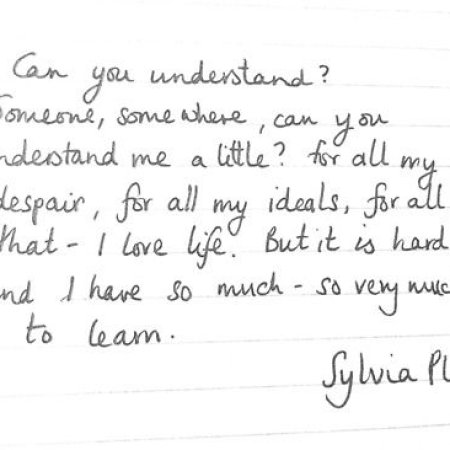 Can you understand?
Someone, somewhere, can you
nderstand me a little? for all my
despair, for all my ideals, for all
that - I love life. But it is hard
nd I have so much - so very muc
to learn.
Sylvia Pl